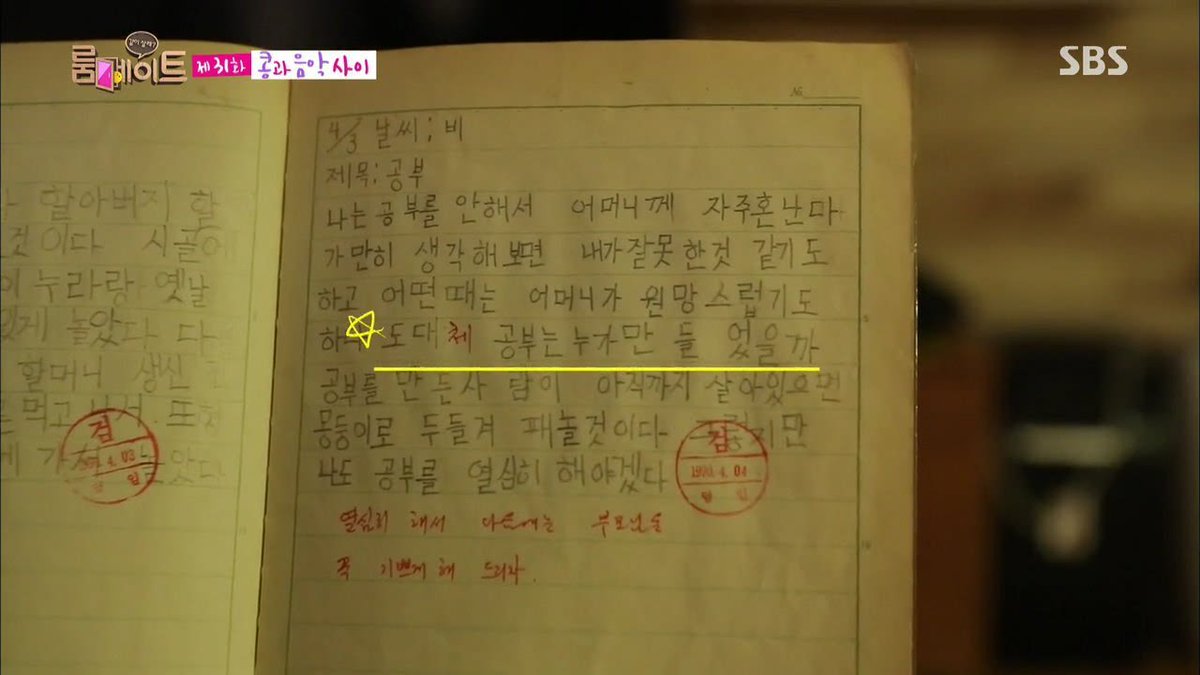 같이 살래?
룸메이트
제31화 콩과 음악 사이
SBS
№
4/3 날씨; 비
제목: 공부
나는 공부를 안해서 어머니께 자주혼난다
가만히 생각해보면 내가잘못한것 같기도
하고 어떤때는 어머니가 원망스럽기도
도대체 공부는누가만 들 었을까
공부를 만 든사 람이 아직까지 살아있으면
몽둥이로 두들겨 패놀것이다 그렇지만
나도 공부를 열심히 해야겠다
검
1990.4.04
열심히 해서 다음에는 부모님을
꼭 기쁘게 해 드리자.
할아버지 할
것이다 시골에
이 누라랑 옛날
있게 놀았다 다
할머니 생신
먹고 또
검
4.03